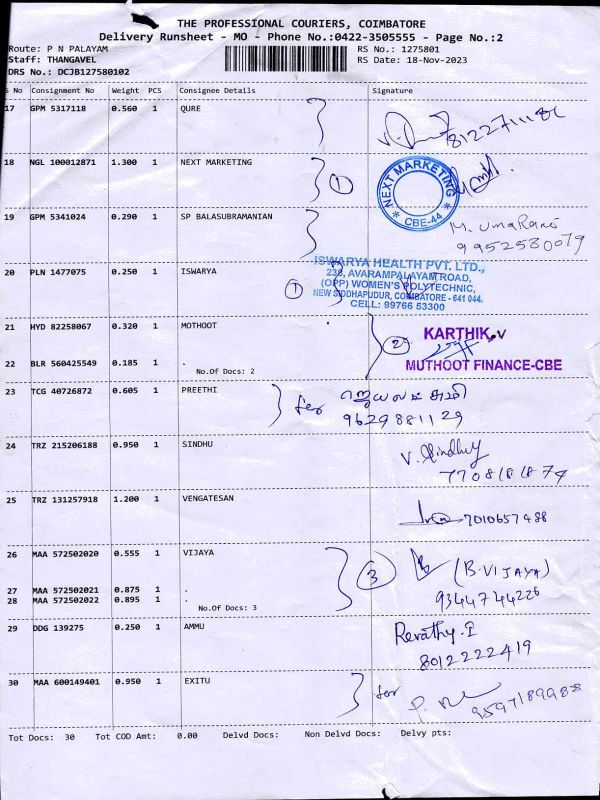 THE PROFESSIONAL COURIERS, COIMBATORE
Delivery Runsheet - MO - Phone No.:0422-3505555 - Page No.:2
Route: P N PALAYAM RS No.: 1275801
Staff: THANGAVEL RS Date: 18-Nov-2023
DRS No.: DCJB127580102
S No Consignment No Weight PCS Consignee Details Signature
17 GPM 5317118 0.560 1 QURE
18 NGL 100012871 1.300 1 NEXT MARKETING
1
NEXT MARKETING
* CBE-44 *
19 GPM 5341024 0.290 1 SP BALASUBRAMANIAN
M. UmaRani
9952580079
20 PLN 1477075 0.250 1 ISWARYA
1
ISWARYA HEALTH PVT. LTD.,
238, AVARAMPALAYAM ROAD,
(OPP) WOMEN'S POLYTECHNIC,
NEW SIDDHAPUDUR, COIMBATORE - 641 044.
CELL: 99766 53300
21 HYD 82258067 0.320 1 MOTHOOT
2
KARTHIK.V
MUTHOOT FINANCE-CBE
22 BLR 560425549 0.185 1 .
No.Of Docs: 2
23 TCG 40726872 0.605 1 PREETHI
for
9629881129
24 TRZ 215206188 0.950 1 SINDHU
V. Sindhuj
7708181874
25 TRZ 131257918 1.200 1 VENGATESAN
7010657488
26 MAA 572502020 0.555 1 VIJAYA
3 (B.VIJAYA)
9344744226
27 MAA 572502021 0.875 1 .
28 MAA 572502022 0.895 1 .
No.Of Docs: 3
29 DDG 139275 0.250 1 AMMU
Revathy.I
8012222419
30 MAA 600149401 0.950 1 EXITU
for
9597189988
Tot Docs: 30 Tot COD Amt: 0.00 Delvd Docs: Non Delvd Docs: Delvy pts: